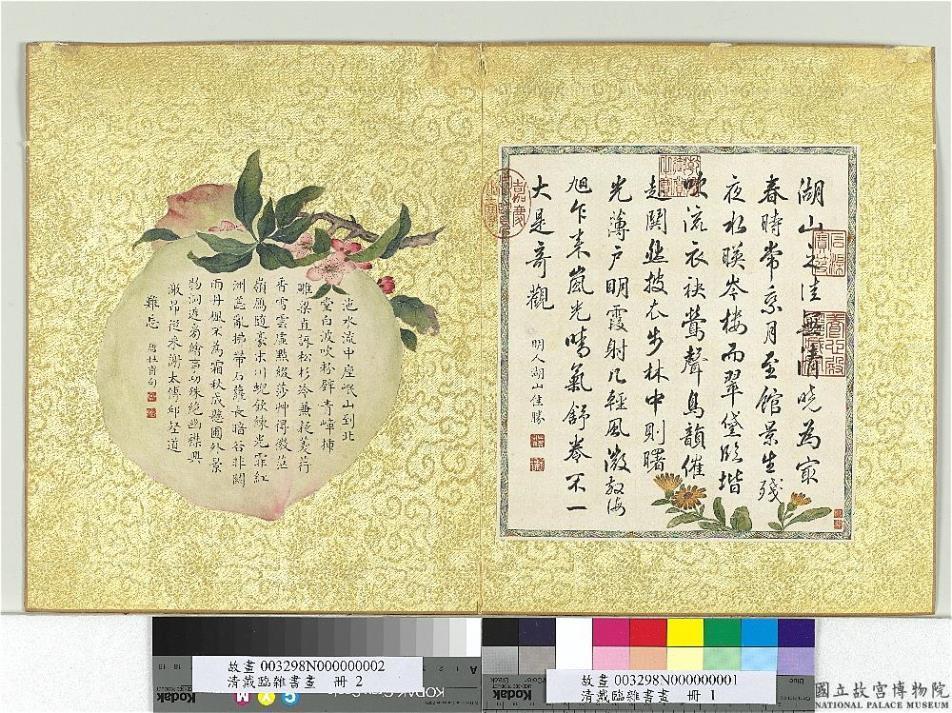 湖山之佳無清曉為冣
春時常乘月至館景生殘
夜水暎岑樓而翠黛臨堦
吹流衣袂鶯聲鳥韻催
起鬨然披衣步林中則曙
光薄戶明霞射几輕風微散海
旭乍來嵐光晴氣舒卷不一
大是奇觀
明人湖山佳勝
沱水流中座岷山到北
堂白波吹粉壁青嶂插
雕梁直訝松杉冷兼疑菱荇
香雪雲虛點綴莎艸得微茫
嶺鴈隨毫末川蜺飲練光霏紅
洲蕊亂拂黛石蘿長暗谷非關
雨丹楓不為霜秋成懸圃外景
物洞庭旁繪事功殊絕幽襟興
激昂從來謝太傅邱壑道
難忘
唐杜甫句
故畫 003298N000000002
清蔵臨雜書畫 冊 2
故畫 003298N000000001
清蔵臨雜書畫 冊 1
Kodak
KODAK
Kodak
國立故宮博物院
NATIONAL PALACE MUSEUM